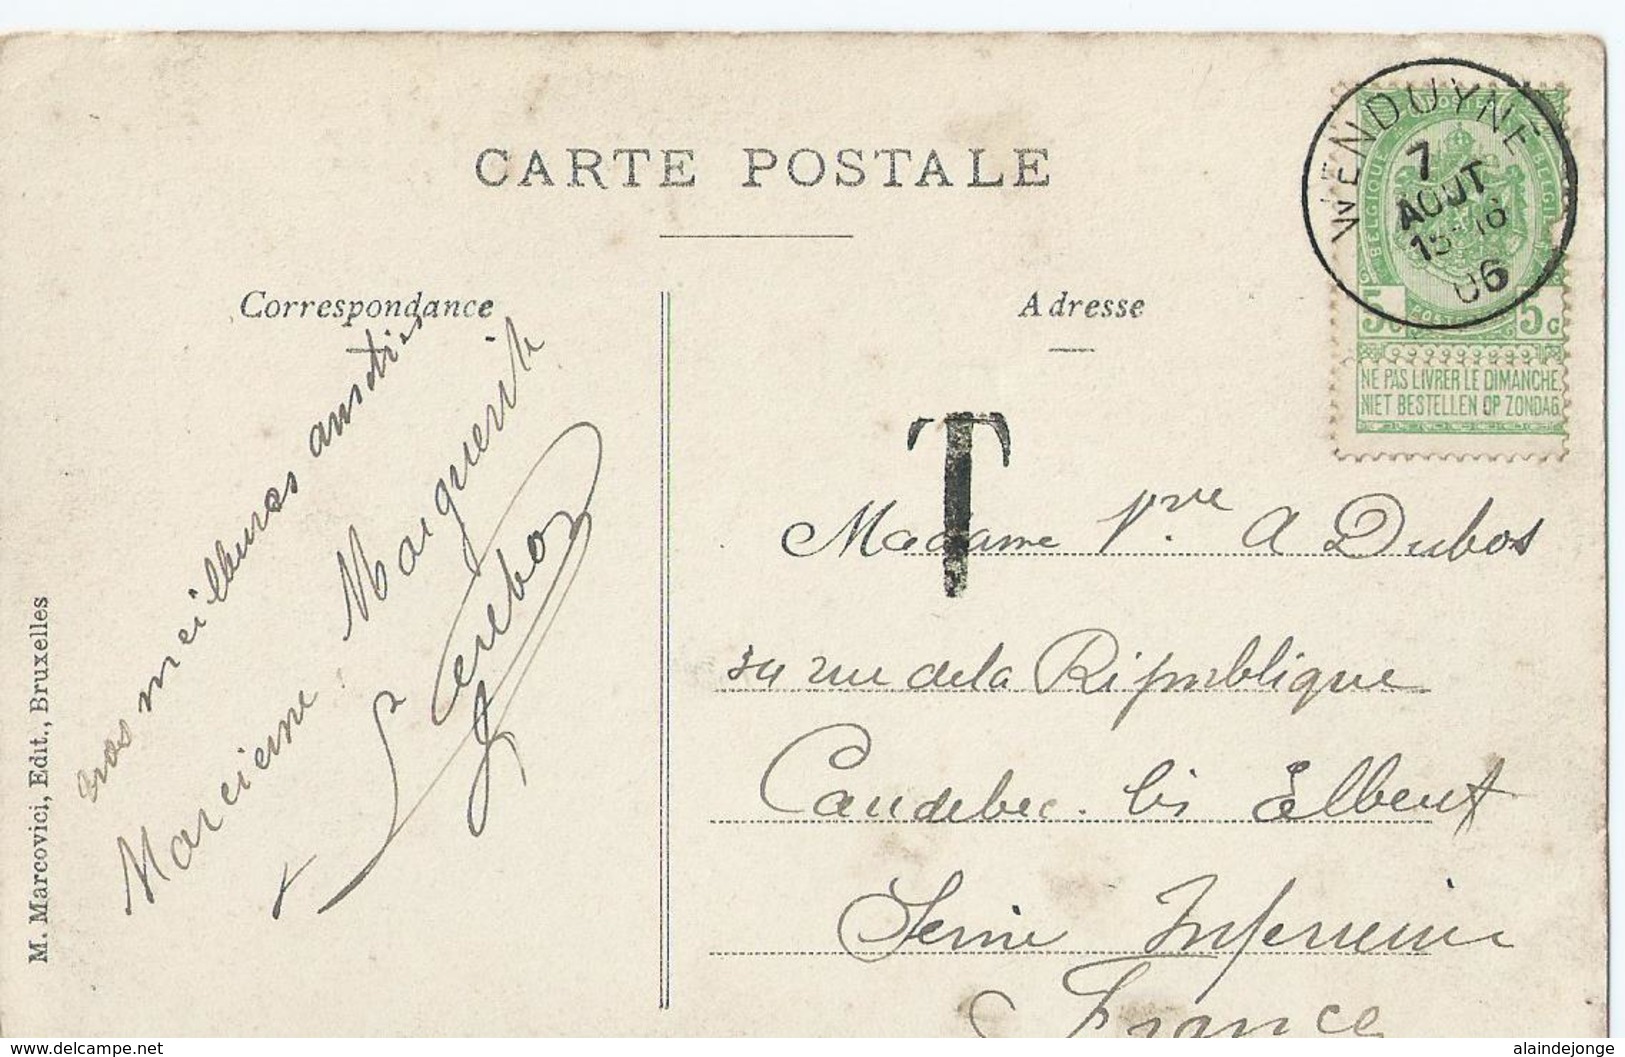 CARTE POSTALE
Correspondance
Adresse
WENDUYNE
7
AOUT
15-16
06
BELGIQUE
POSTERIJEN
5c
5c
NE PAS LIVRER LE DIMANCHE.
NIET BESTELLEN OP ZONDAG
T
nos meilleures
Marcienne Marguerite
Madame Vve A Dubos
34 rue de la République
Caudebec. lès Elbeuf
Seine Inférieure
France
M. Marcovici, Edit., Bruxelles
delcampe.net
alaindejonge